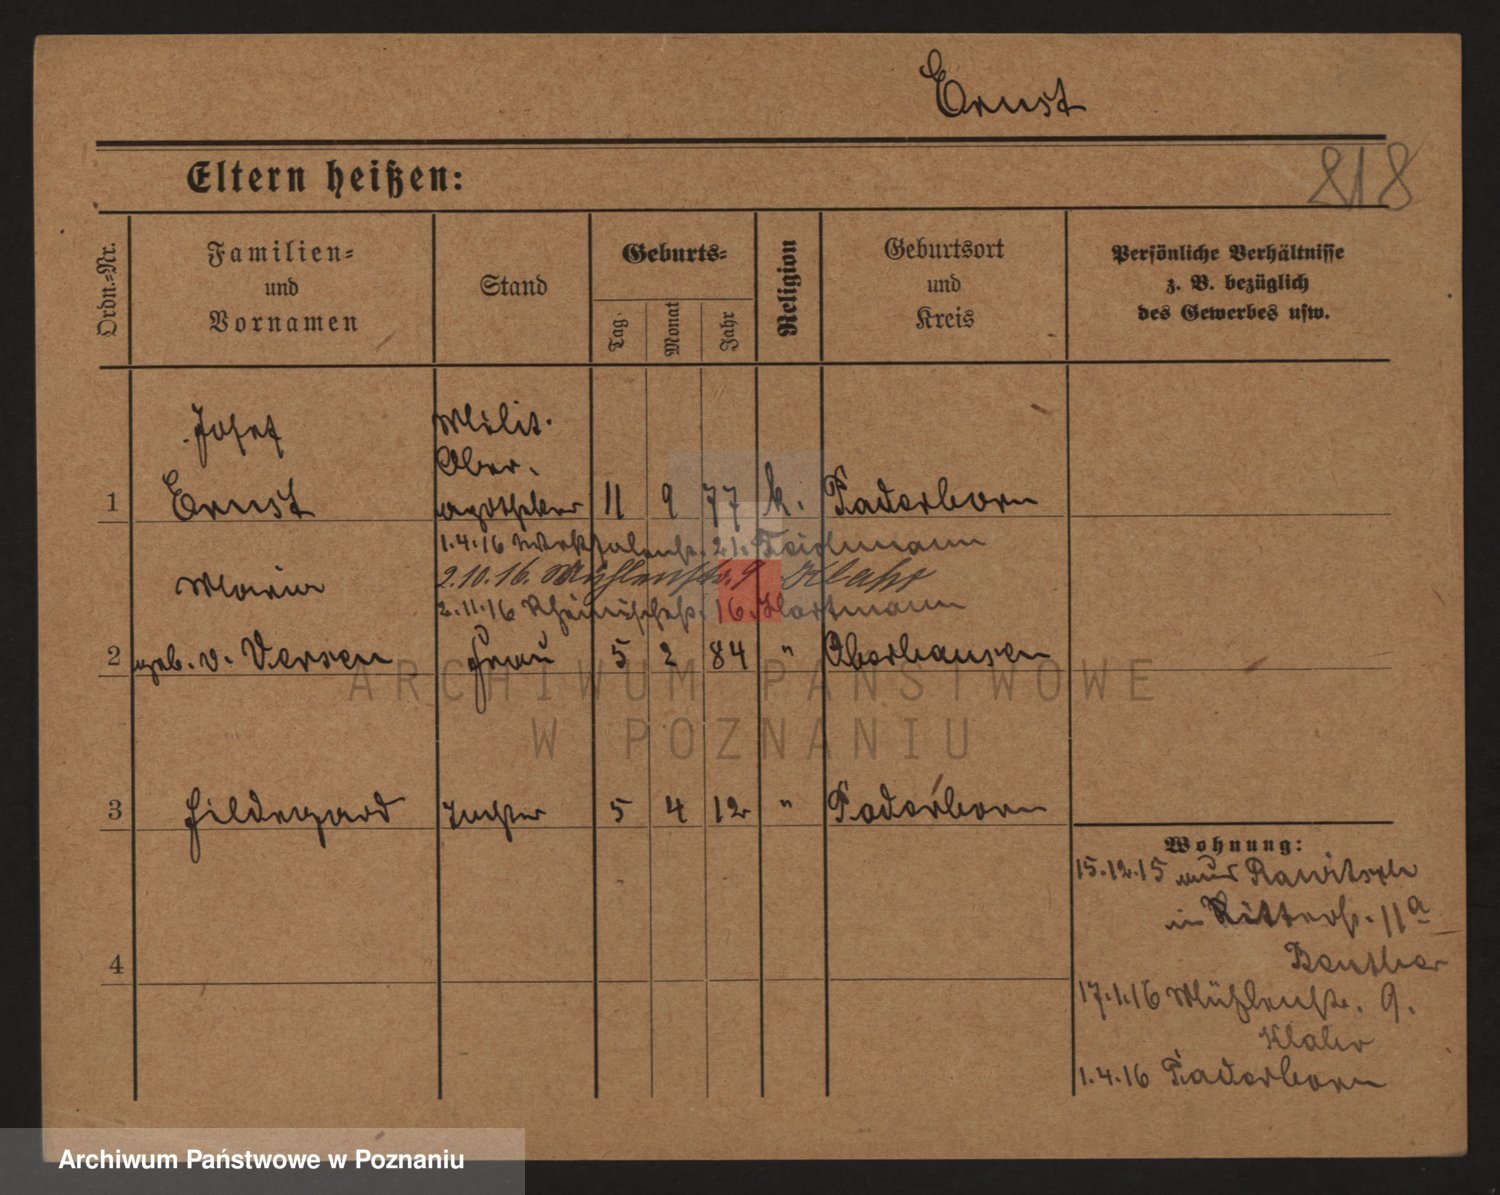 Ernst
Eltern heißen:
818
Ordn.-Nr.
Familien-
und
Vornamen
Stand
Geburts-
Tag.
Monat
Jahr
Religion
Geburtsort
und
Kreis
Persönliche Verhältnisse
z. B. bezüglich
des Gewerbes usw.
Josef
Milit.
Ober-
1 Ernst apotheker 11 9 77 k. Paderborn
1.4.16 21. Teichmann
Maria
2.10.16. Mühlenstr. 9 Klahr
2.11.16 Rheinischestr. 16. Hartmann
2 geb. v. Versen Frau 5 2 84 " Oberhausen
3 Hildegard Tochter 5 4 12 " Paderborn
4
Wohnung:
15.12.15 aus Rawitsch
in Ritterstr. 11a
17.1.16 Mühlenstr. 9.
Klahr
1.4.16 Paderborn
ARCHIWUM PAŃSTWOWE
W POZNANIU
Archiwum Państwowe w Poznaniu